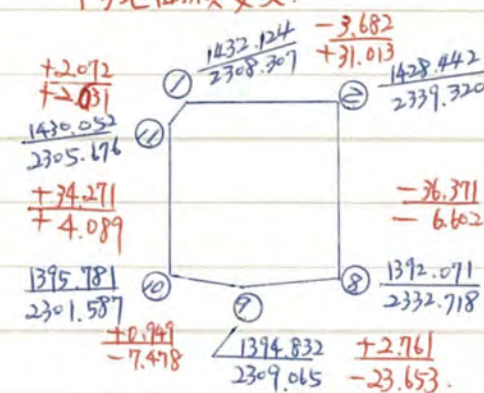 ①
1432.124
2308.307
-3.682
+31.013
②
1428.442
2339.320
+2.072
+2.031
1430.052
2305.676
⑪
+34.271
+4.089
-36.371
-6.602
1395.781
2301.587
⑩
⑧
1392.071
2332.718
+0.949
-7.478
⑨
1394.832
2309.065
+2.761
-23.653.